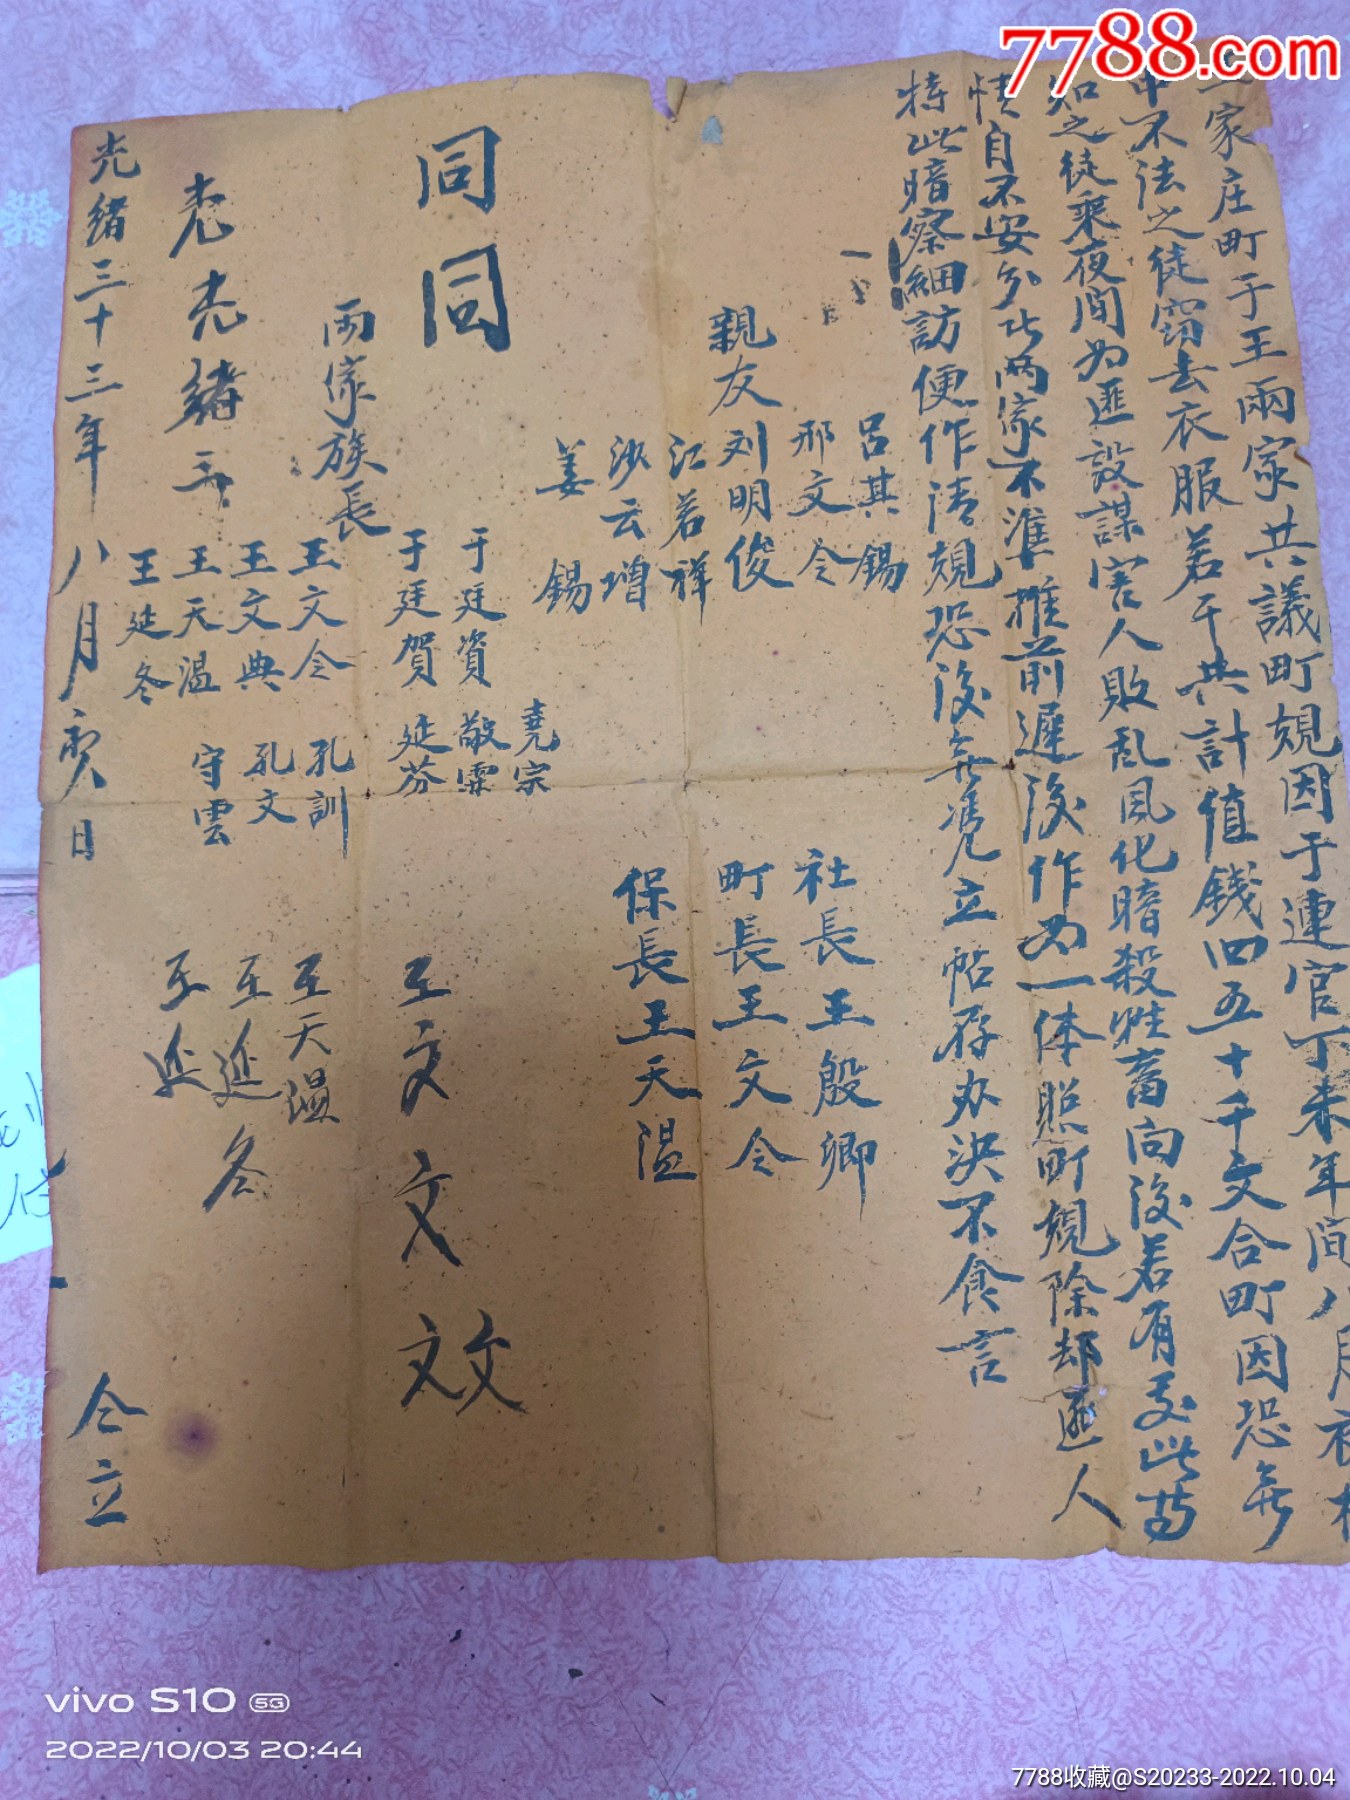 7788.com
家庄町于王兩家共議町規因于連官丁未年間八月衣
中不法之徒窃去衣服若干共計值錢四五十千文合町因恐無
知之徒乘夜間为匪設謀害人敗乱風化暗殺牲畜向後若有
情自不安分此两家不準推前遲後作为一体照町規除却匪人
特此暗察細訪便作清規恐後無憑立帖存办決不食言
呂其錫
邢文仝
親友刘明俊
江若祥
沙云增
姜錫
社長王殷卿
町長王文仝
保長王天溫
同同
堯宗
于廷資 敬霖
于廷賀 延芬
兩家族長
王文仝 孔訓
王文典 孔文
王天溫 守雲
王延冬
王文文效
王天溫
王延冬
王延
光緒三十三年八月 日 仝立
vivo S10 5G
2022/10/03 20:44
7788收藏@S20233-2022.10.04